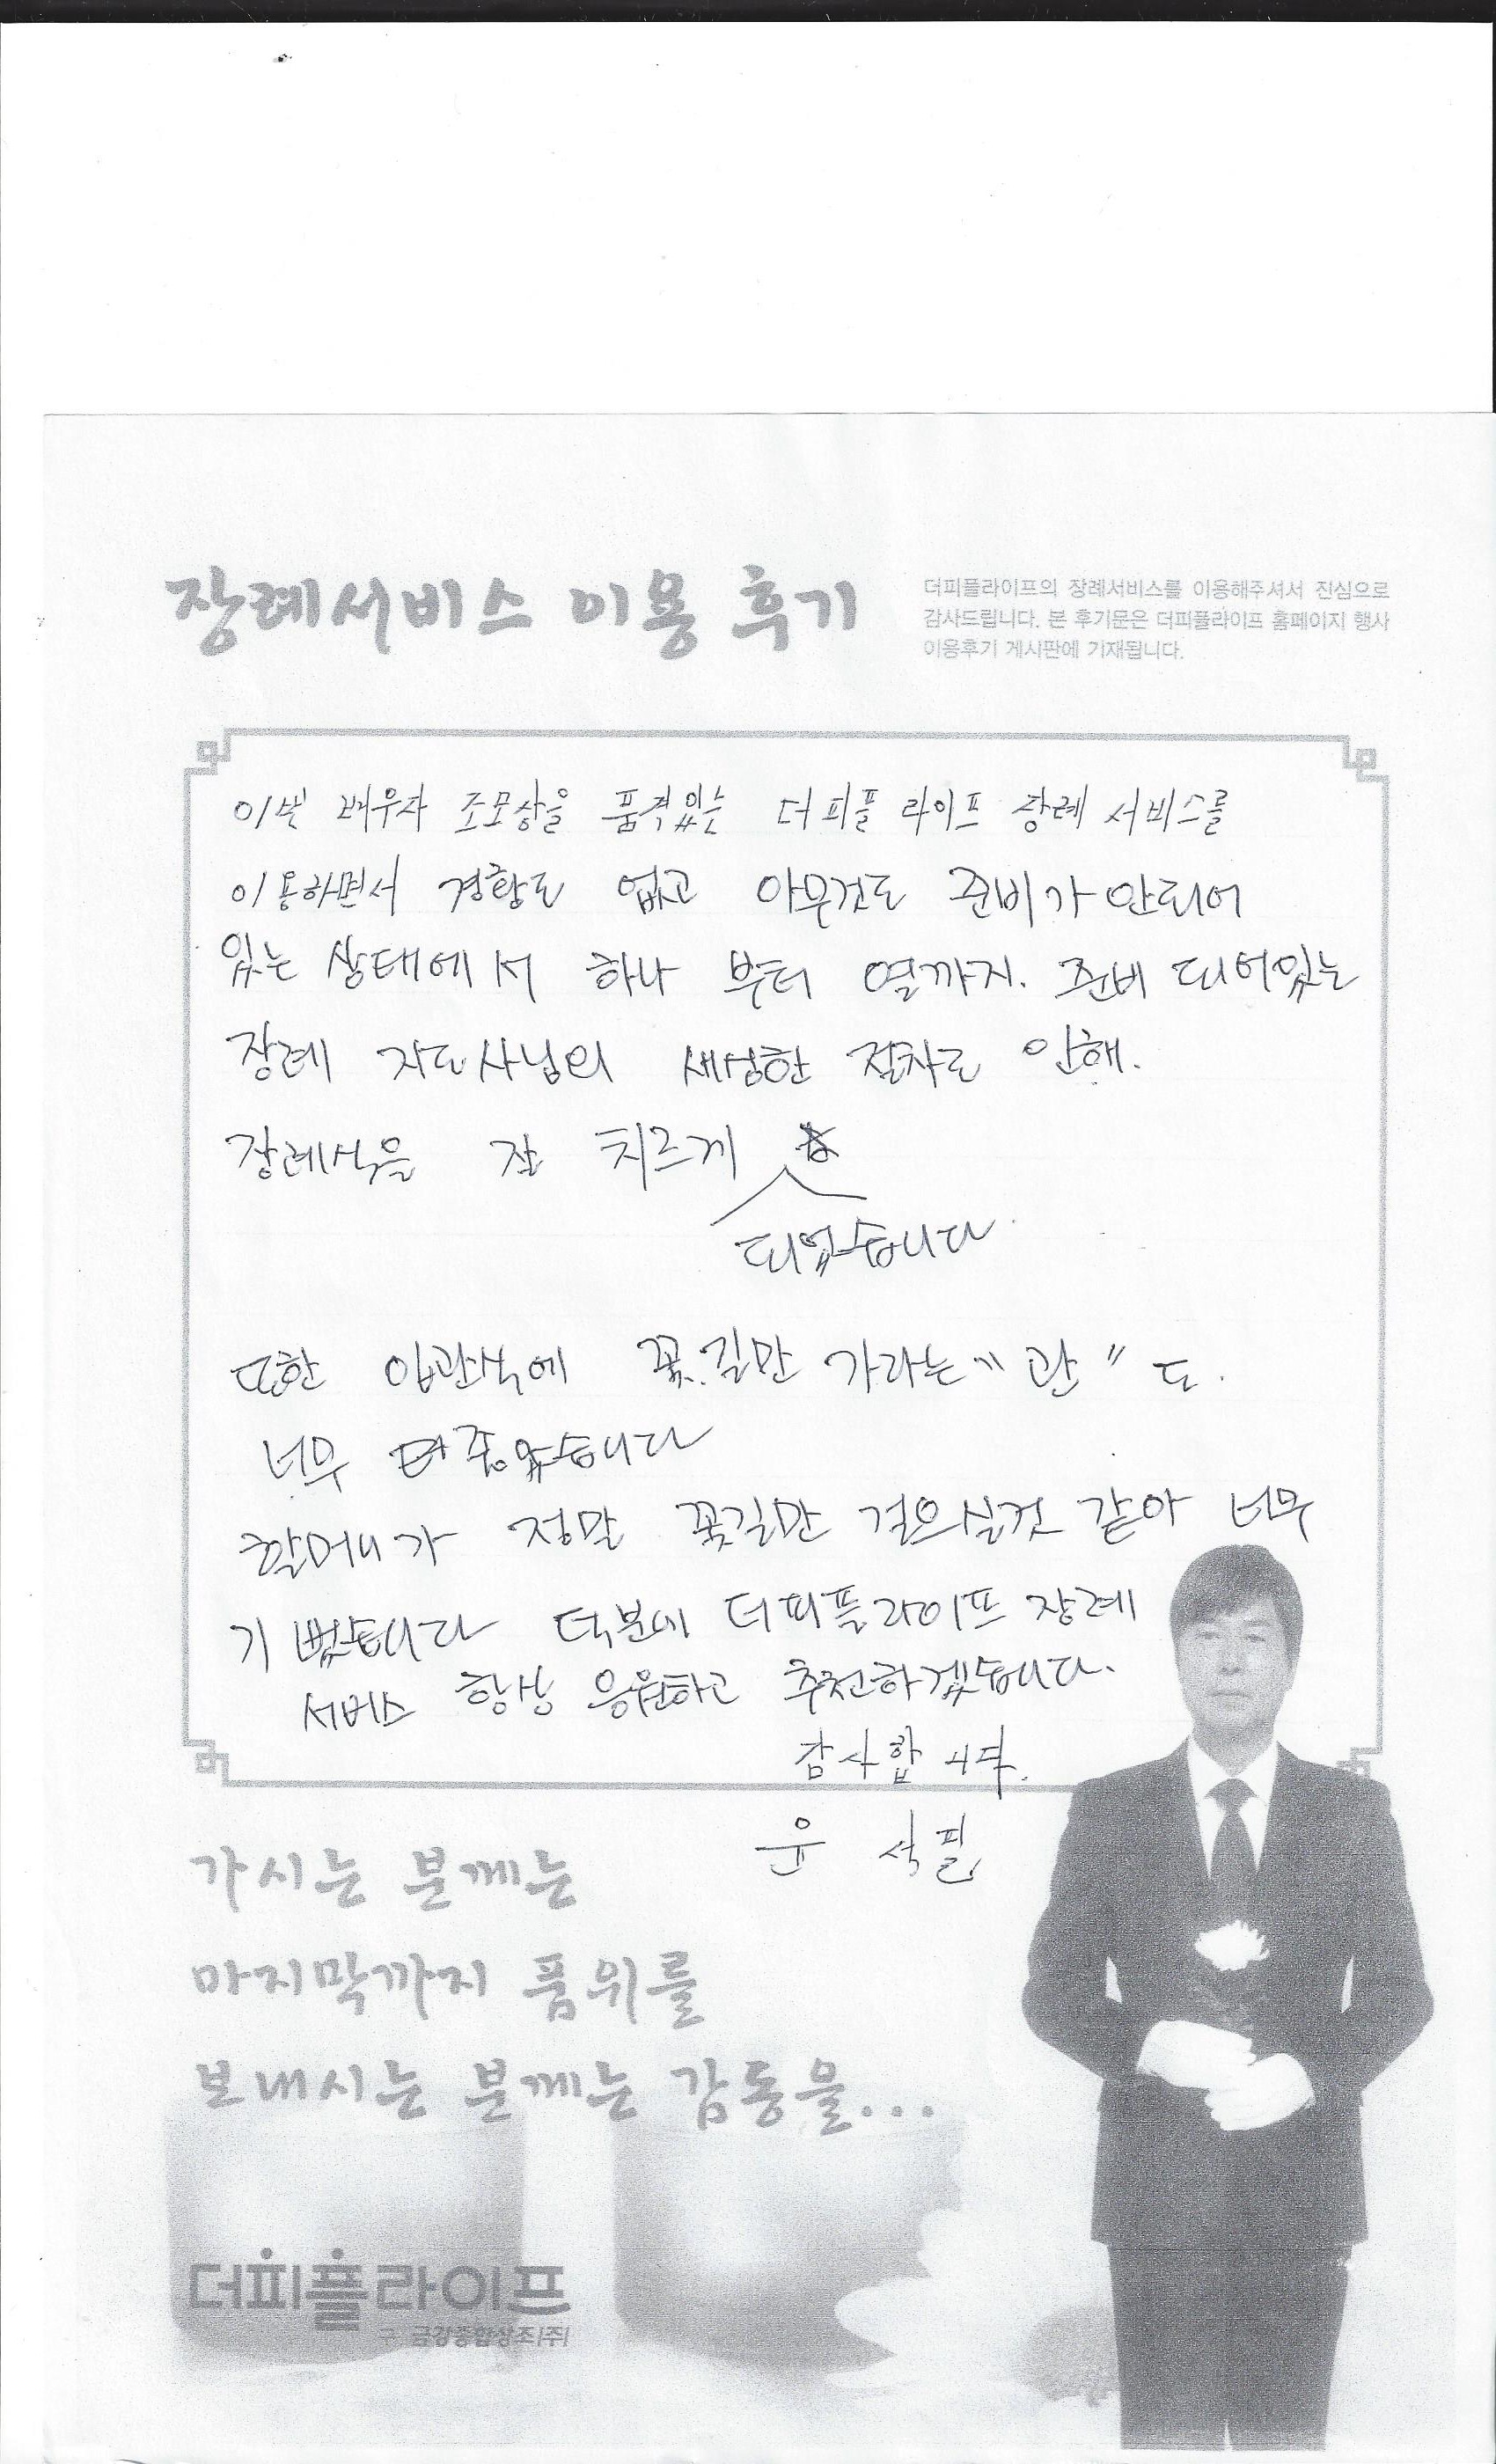 장례서비스 이용 후기
더피플라이프의 장례서비스를 이용해주셔서 진심으로
감사드립니다. 본 후기문은 더피플라이프 홈페이지 행사
이용후기 게시판에 기재됩니다.
이번 배우자 조모상을 품격있는 더피플 라이프 장례 서비스를
이용하면서 경황도 없고 아무것도 준비가 안되어
있는 상태에서 하나 부터 열까지. 준비 되어있는
장례 지도사님의 세심한 절차로 인해.
장례식을 잘 치르게
되었습니다.
또한 입관식에 꽃.길만 가라는 "관" 도.
너무 더 좋았습니다
할머니가 정말 꽃길만 걸으실것 같아 너무
기뻤습니다 덕분에 더피플라이프 장례
서비스 항상 응원하고 추천하겠습니다.
감사합니다.
윤 석필
가시는 분께는
마지막까지 품위를
보내시는 분께는 감동을...
더피플라이프
구 금강종합상조(주)